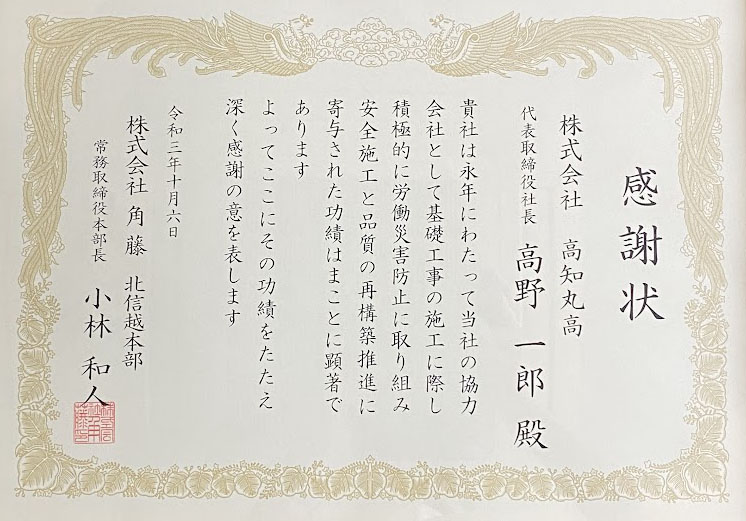 感謝状
株式会社 高知丸高
代表取締役社長 高野 一郎 殿
貴社は永年にわたって当社の協力
会社として基礎工事の施工に際し
積極的に労働災害防止に取り組み
安全施工と品質の再構築推進に
寄与された功績はまことに顕著で
あります
よってここにその功績をたたえ
深く感謝の意を表します
令和三年十月六日
株式会社 角藤 北信越本部
常務取締役本部長 小林 和人